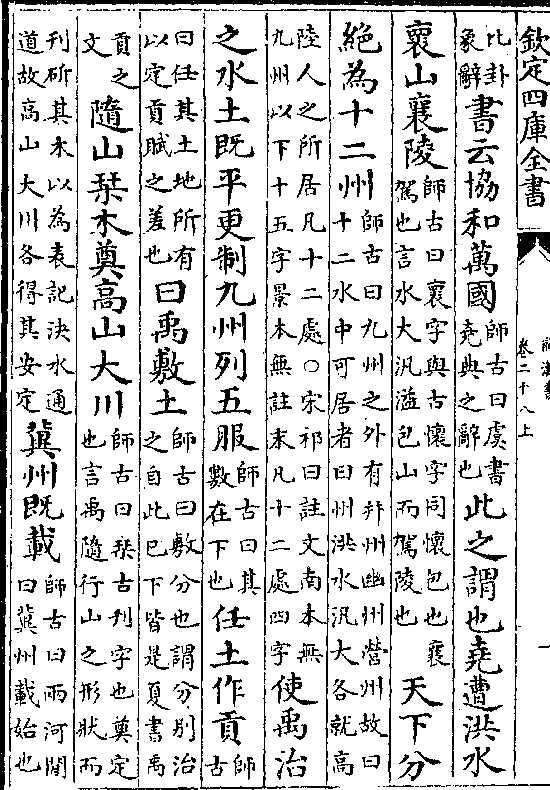 欽定四庫全書
前漢書
卷二十八上
一
比卦象辭書云協和萬國師古曰虞書堯典之辭也此之謂也堯遭洪水
褱山襄陵師古曰褱字與古懷字同懷包也襄駕也言水大汎溢包山而駕陵也天下分
絕為十二州師古曰九州之外有并州幽州營州故曰十二水中可居者曰州洪水汎大各就高
陸人之所居凡十二處○宋祁曰註文南本無九州以下十五字景本無註末凡十二處四字使禹治
之水土既平更制九州列五服師古曰其數在下也任土作貢師古
曰任其土地所有以定貢賦之差也曰禹敷土師古曰敷分也謂分別治之自此已下皆是夏書禹
貢之文隨山栞木奠高山大川師古曰栞古刊字也奠定也言禹隨行山之形狀而
刊斫其木以為表記決水通道故高山大川各得其安定冀州既載師古曰兩河間曰冀州載始也